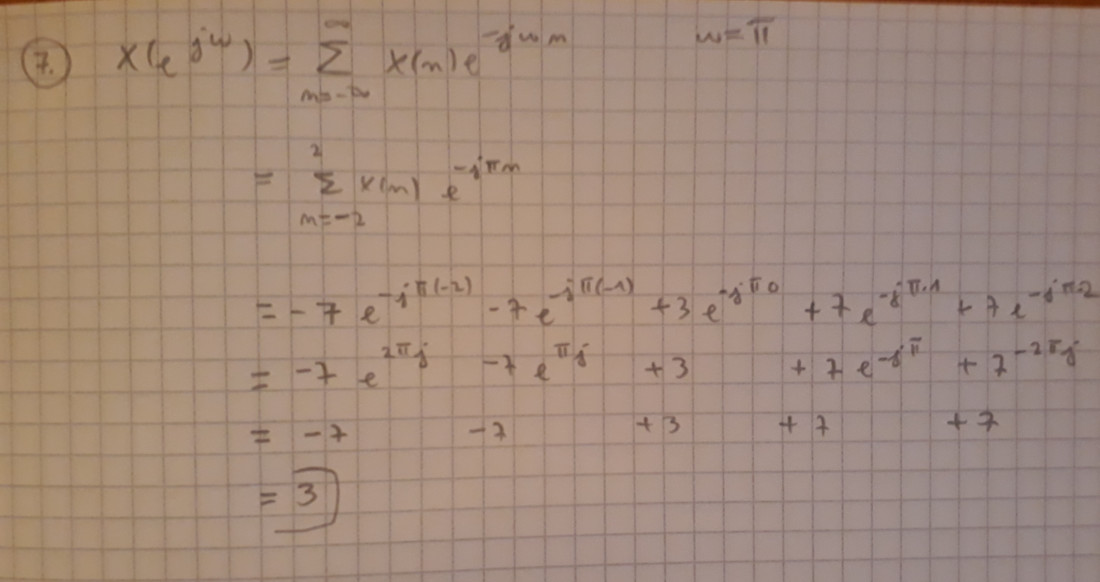 7. X(e^{jω}) = ∑_{n=-∞}^{∞} x(n) e^{-jωn} ω=π
= ∑_{n=-2}^{2} x(n) e^{-jπn}
= -7 e^{-jπ(-2)} -7 e^{-jπ(-1)} +3 e^{-jπ0} +7 e^{-jπ·1} +7 e^{-jπ·2}
= -7 e^{2πj} -7 e^{πj} +3 +7 e^{-jπ} +7^{-2πj}
= -7 -7 +3 +7 +7
= 3